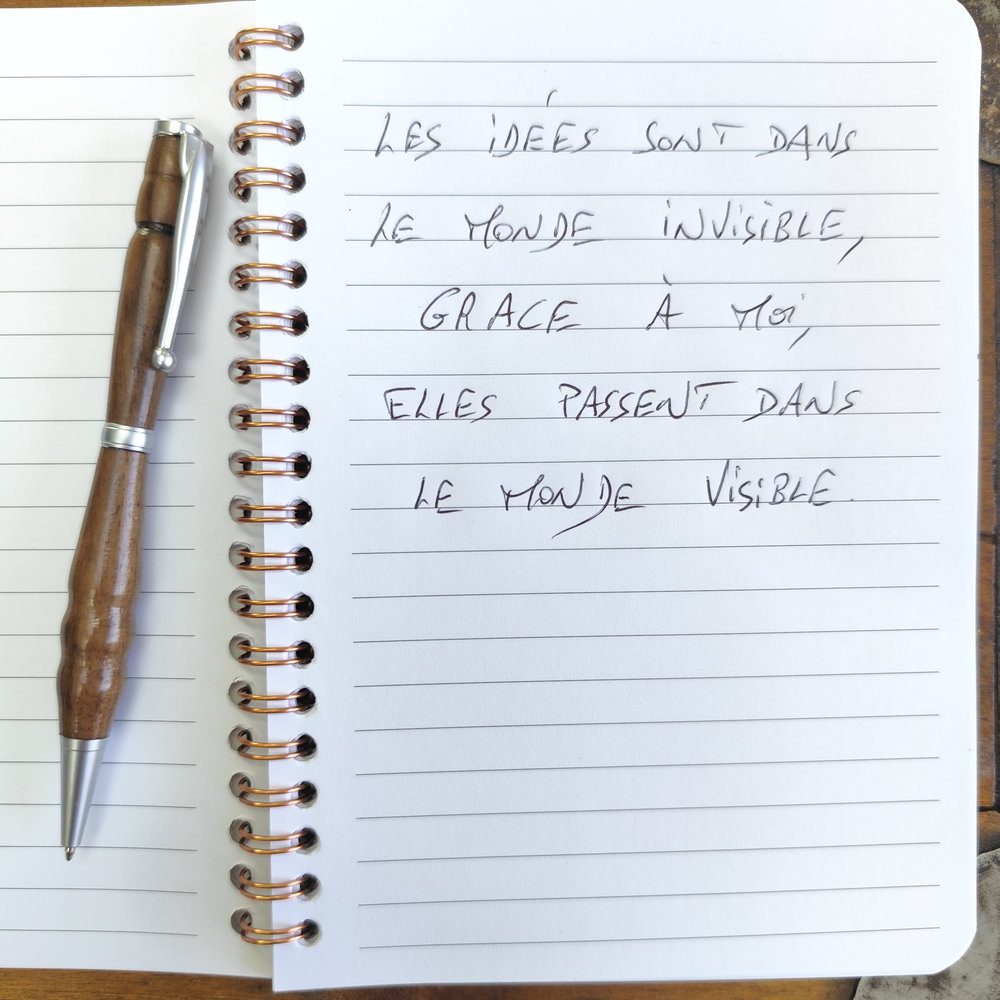 LES IDÉES SONT DANS
LE MONDE INVISIBLE,
GRACE À MOI,
ELLES PASSENT DANS
LE MONDE VISIBLE.